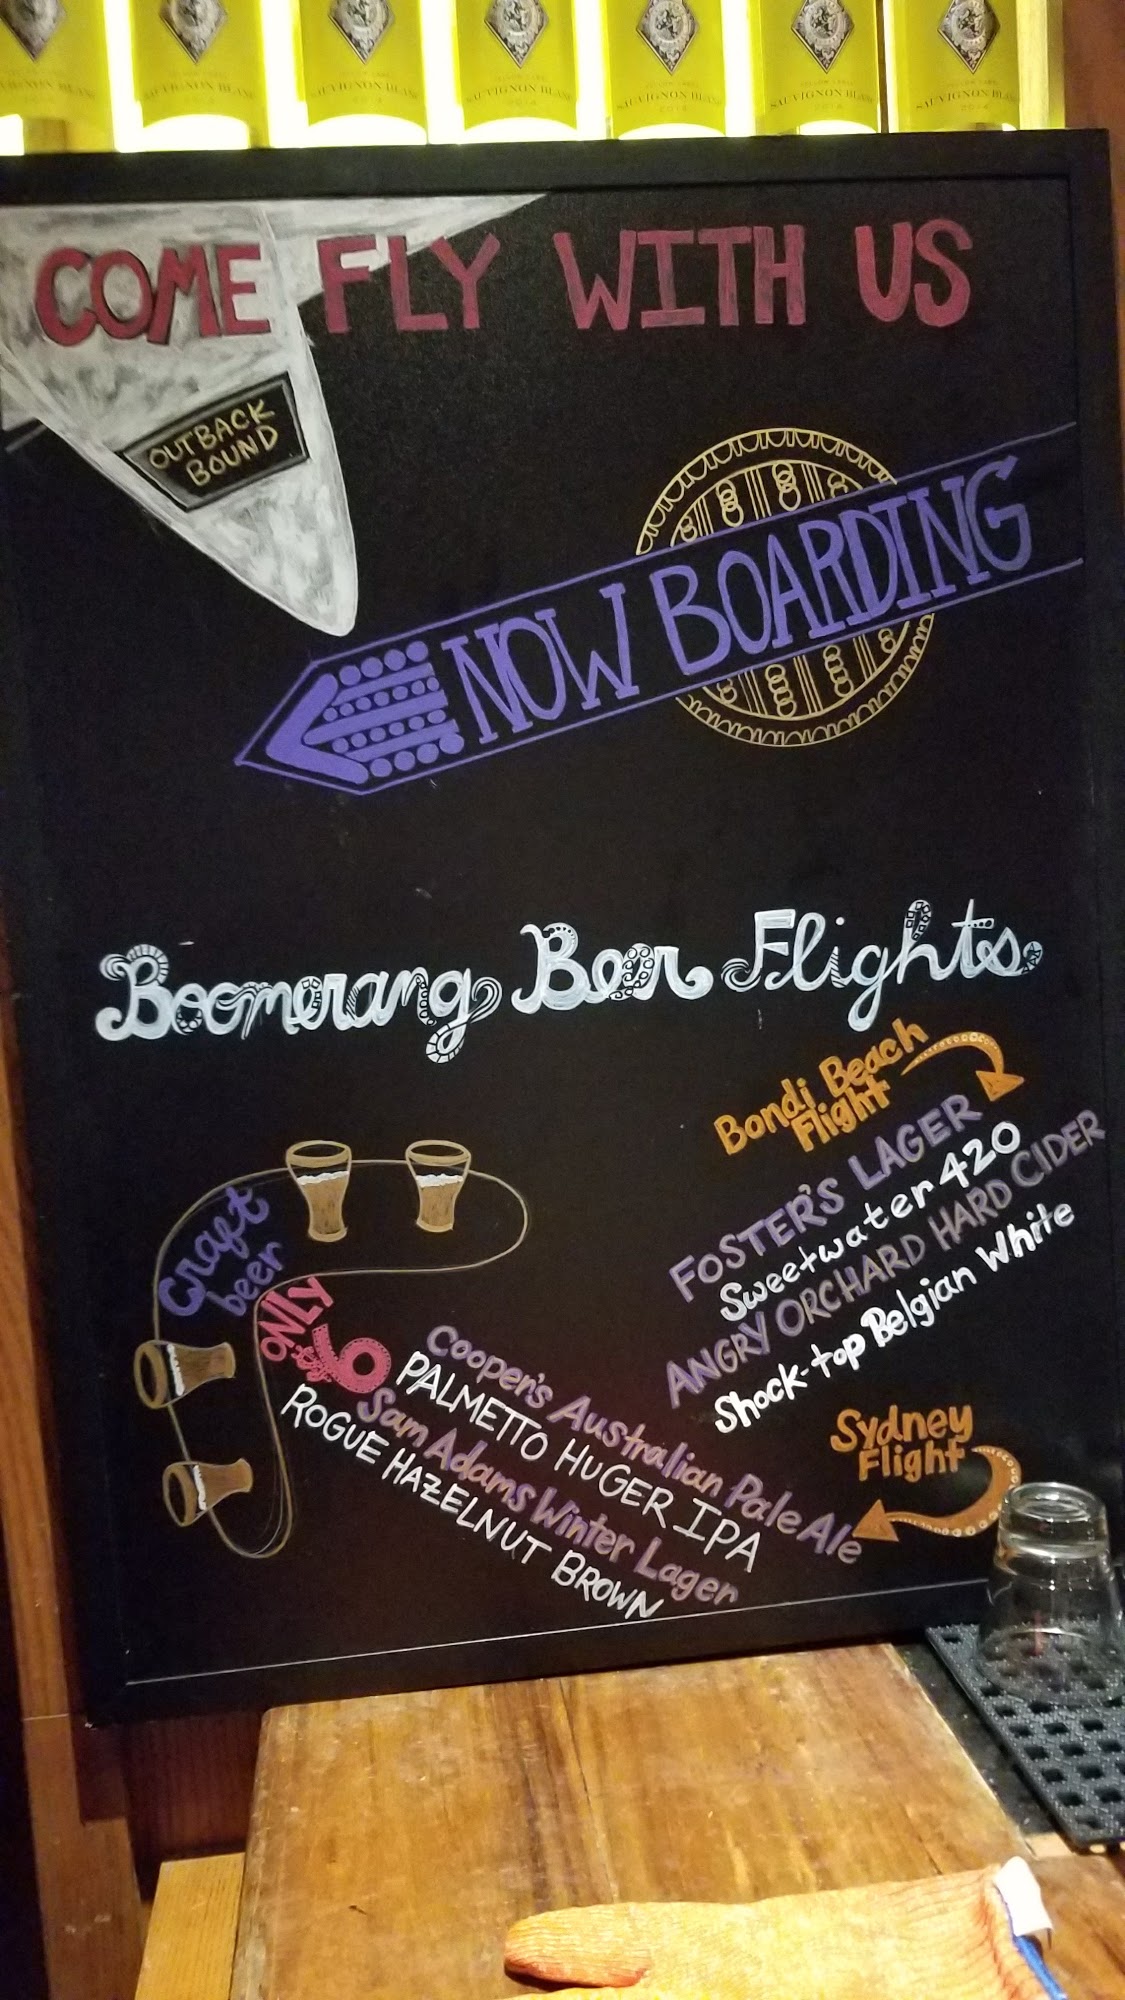 SAUVIGNON BLANC
2014
SAUVIGNON BLANC
2014
COME FLY WITH US
OUTBACK
BOUND
NOW BOARDING
Boomerang Beer Flights
Bondi Beach
Flight
FOSTER'S LAGER
Sweetwater 420
ANGRY ORCHARD HARD CIDER
Shock-top Belgian White
Craft
beer
ONLY
$6
Sydney
Flight
Cooper's Australian Pale Ale
PALMETTO HUGER IPA
Sam Adams Winter Lager
ROGUE HAZELNUT BROWN